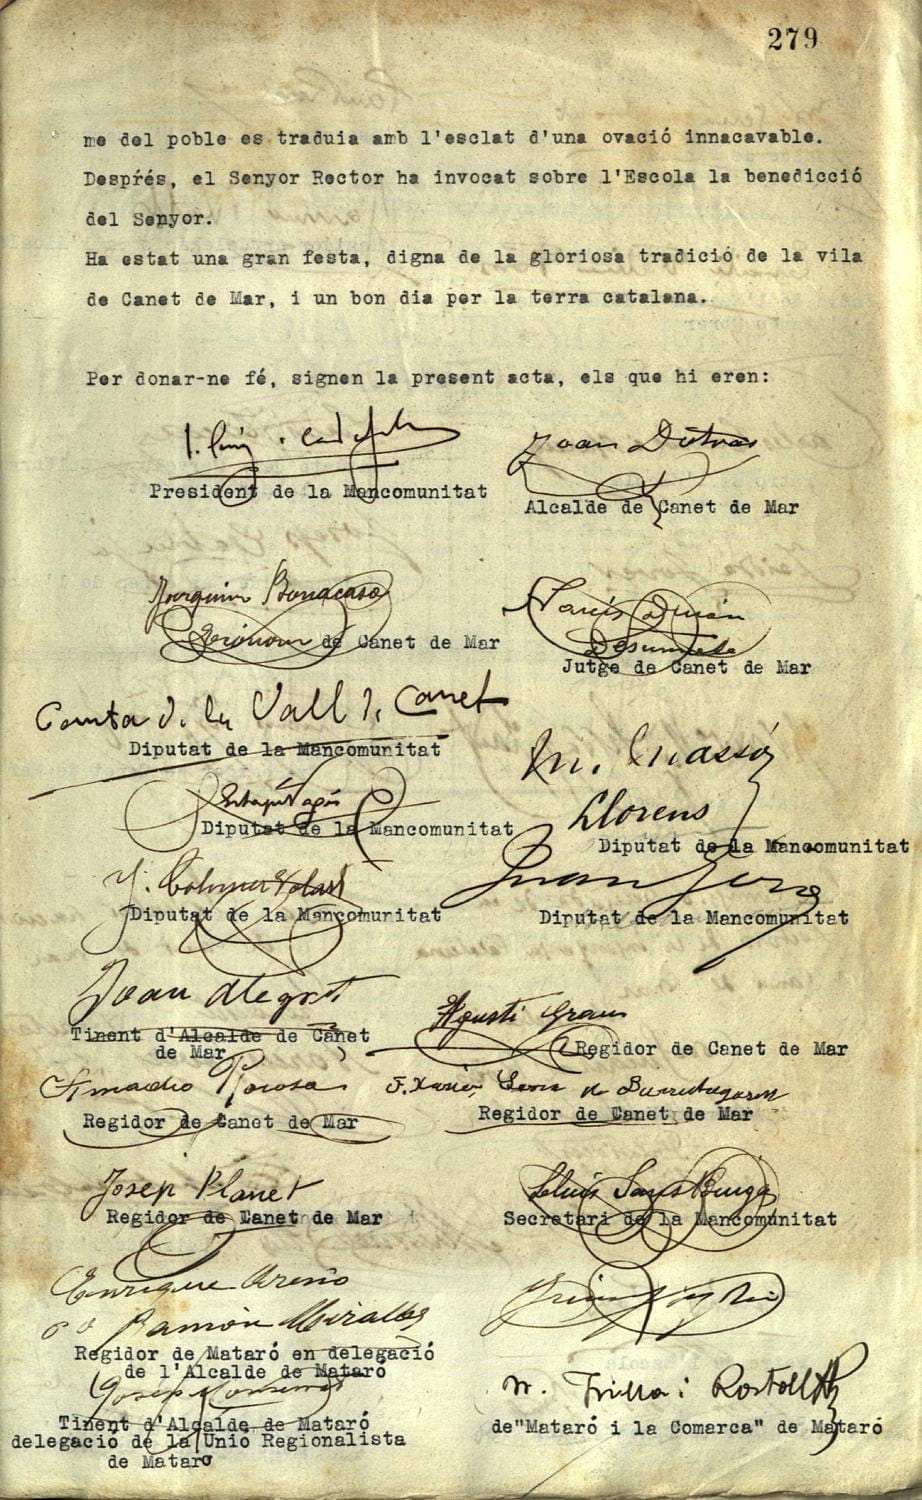 279
me del poble es traduia amb l'esclat d'una ovació innacavable.
Desprŕés, el Senyor Rector ha invocat sobre l'Escola la benedicció
del Senyor.
Ha estat una gran festa, digna de la gloriosa tradició de la vila
de Canet de Mar, i un bon dia per la terra catalana.
Per donar-ne fé, signen la present acta, els que hi eren:
J. Puig i Cadafalch
Joan Dotras
President de la Mancomunitat
Alcalde de Canet de Mar
Bonacasa
de Canet de Mar
Jutge de Canet de Mar
Comta d. la Vall d. Canet
Diputat de la Mancomunitat
M. Massó
Llorens
Diputat de la Mancomunitat
Diputat de la Mancomunitat
Diputat de la Mancomunitat
Diputat de la Mancomunitat
Joan Alegret
Tinent d'Alcalde de Canet
de Mar
Agustí Grau
Regidor de Canet de Mar
Amadio Rocosa
F. Xavier
Regidor de Canet de Mar
Regidor de Canet de Mar
Josep Planet
Regidor de Canet de Mar
Lluis Sans Buigas
Secretari de la Mancomunitat
Enrique Arenio
Ramón Miralles
Regidor de Mataró en delegació
de l'Alcalde de Mataró
Josep
Tinent d'Alcalde de Mataró
delegació de la Unió Regionalista
de Mataro
de"Mataró i la Comarca" de Mataró